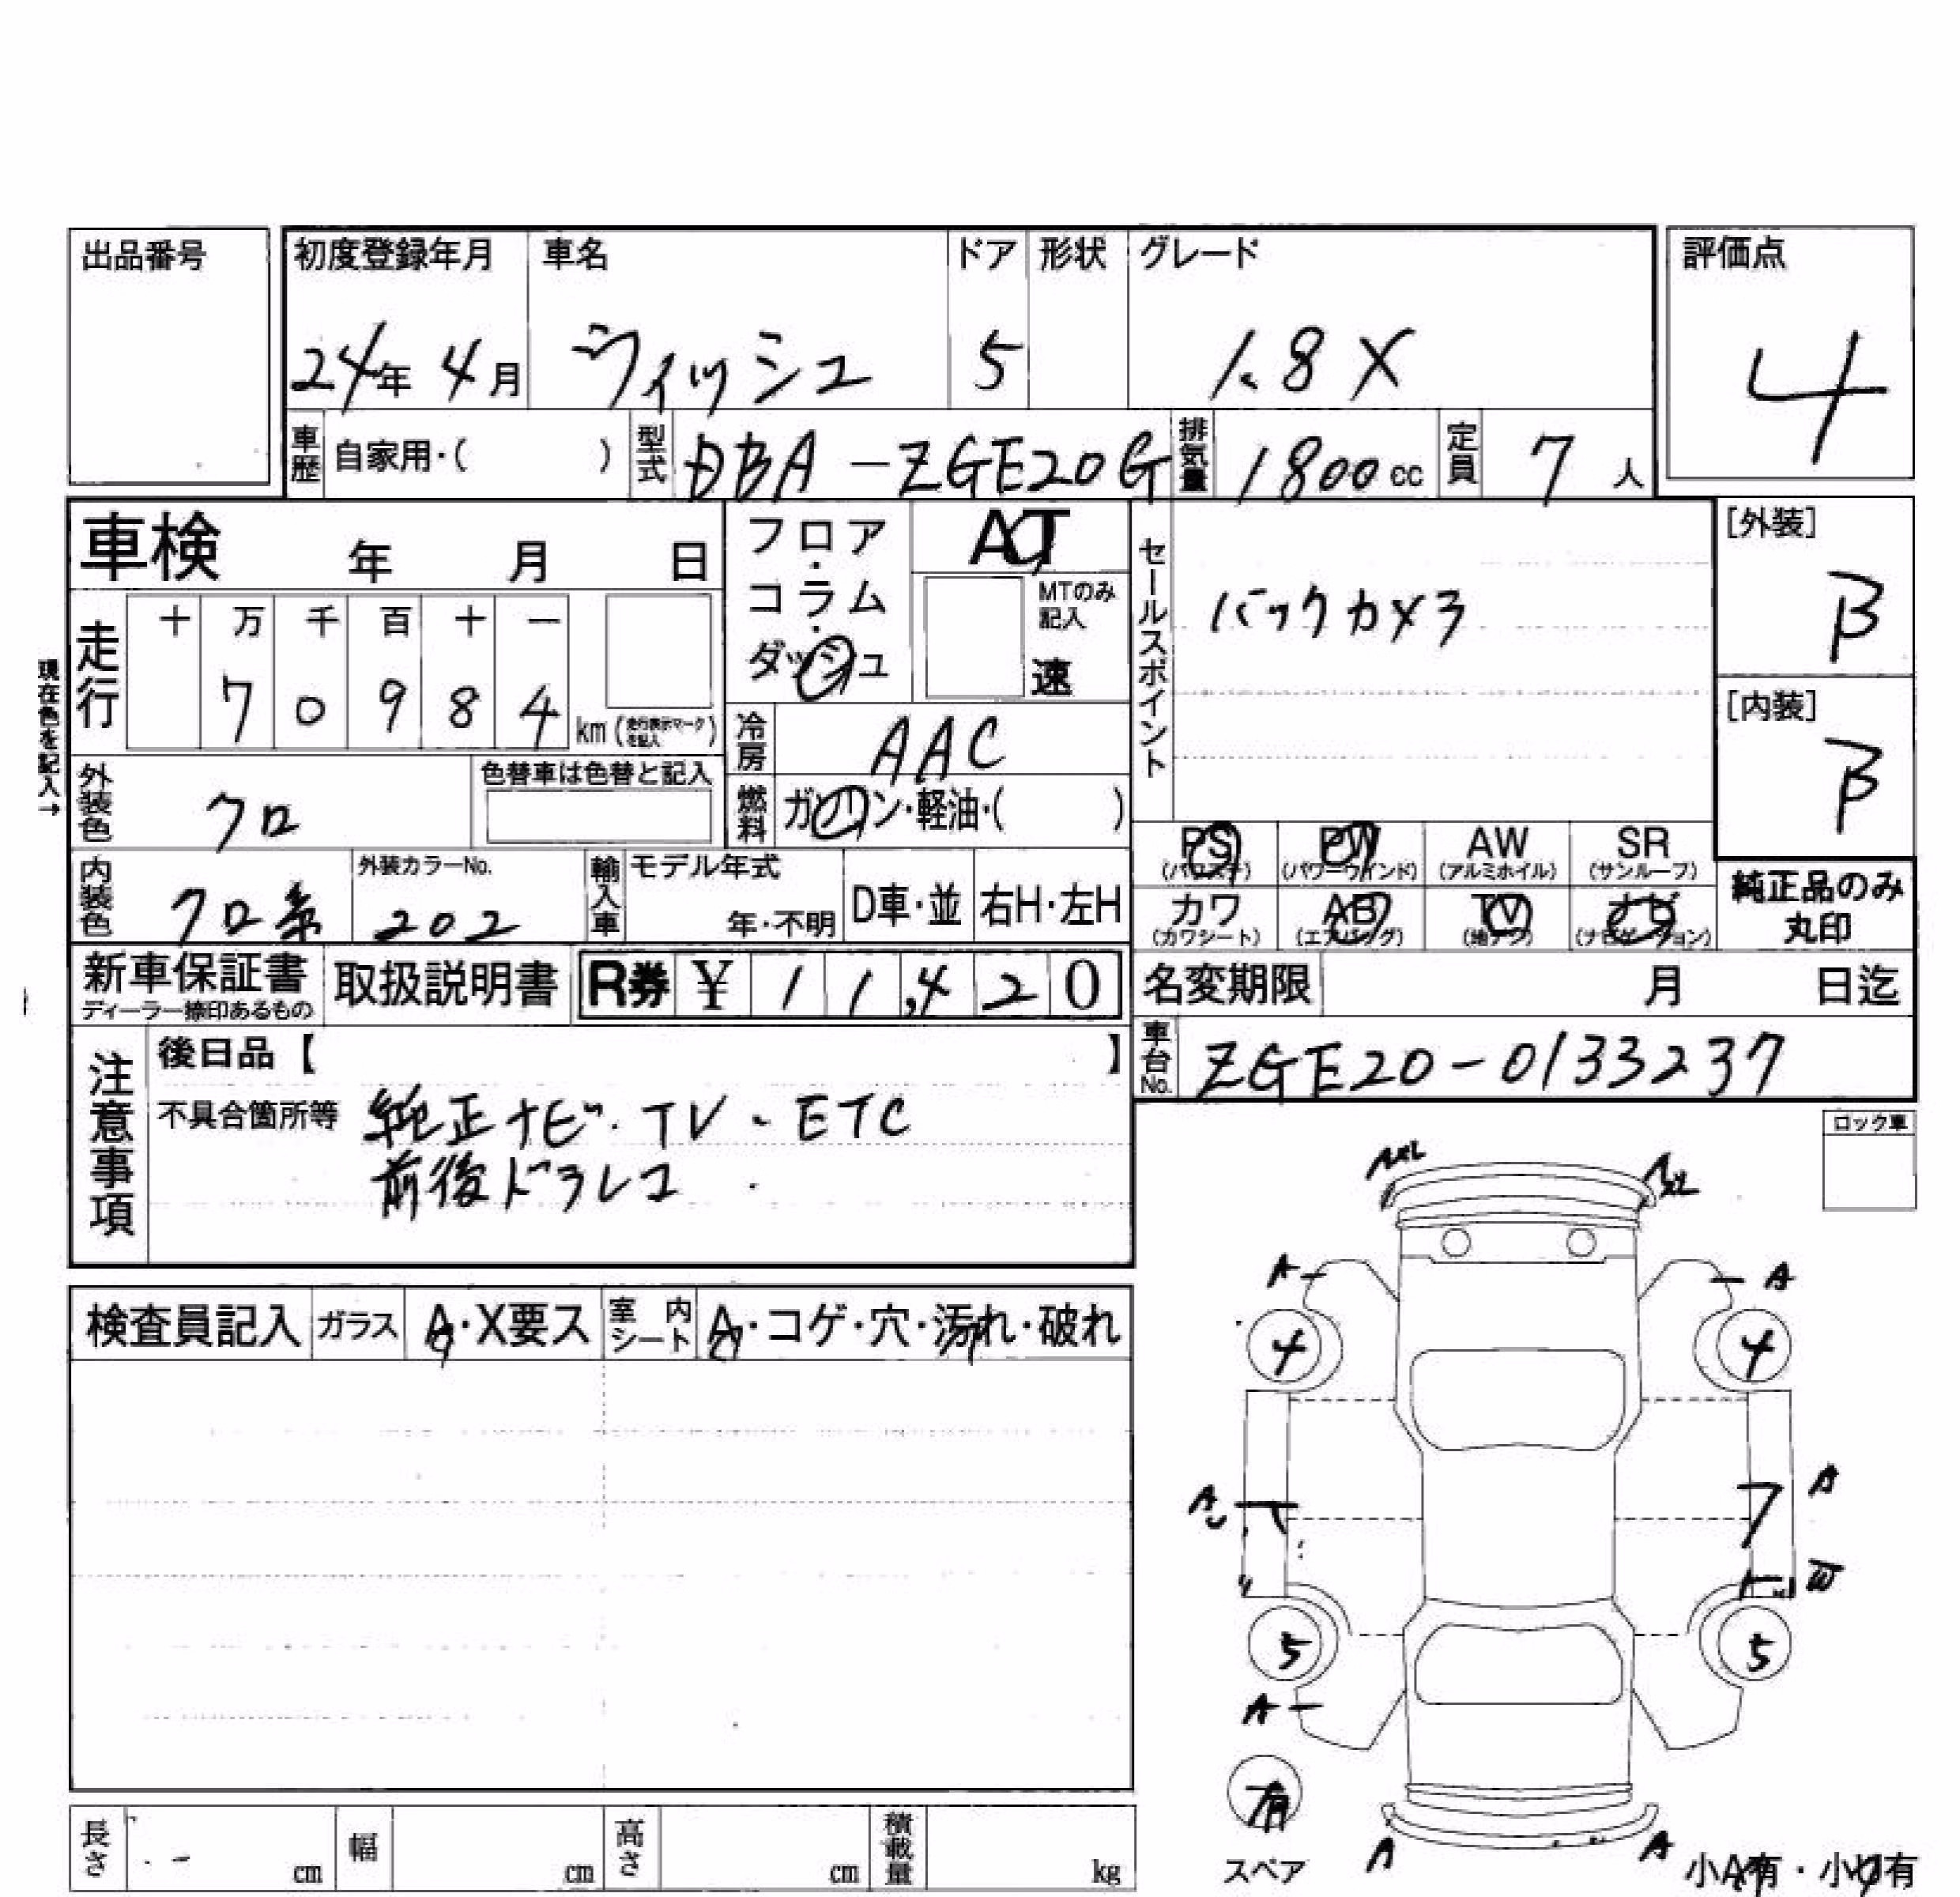 出品番号
初度登録年月 車名 ドア 形状 グレード 評価点
24年 4月 ウィッシュ 5 1.8X 4
車歴 自家用・( ) 型式 DBA-ZGE20G 排気量 1800cc 定員 7人
車検 年 月 日
フロア・コラム・ダッシュ
AT
MTのみ記入
速
セールスポイント
バックカメラ
[外装]
B
[内装]
B
現在色を記入→
走行 十 万 千 百 十 一
7 0 9 8 4 km (走行表示マークを記入)
冷房 AAC
外装色 クロ 色替車は色替と記入
燃料 ガソリン・軽油・( )
PS (パワステ) PW (パワーウインド) AW (アルミホイル) SR (サンルーフ)
カワ (カワシート) AB (エアバッグ) TV (地デジ) ナビ (ナビゲーション)
純正品のみ丸印
内装色 クロ系 外装カラーNo. 202 輸入車 モデル年式 年・不明 D車・並 右H・左H
新車保証書 ディーラー捺印あるもの 取扱説明書 R券 ¥ 11,420
名変期限 月 日迄
車台No. ZGE20-0133237
注意事項
後日品【 】
不具合箇所等 純正ナビ・TV・ETC
前後ドラレコ
ロック車
検査員記入 ガラス A・X要ス 室内シート A・コゲ・穴・汚れ・破れ
A A
4 4
A A
W
5 5
A
有
スペア
A A
小A有・小U有
長さ cm 幅 cm 高さ cm 積載量 kg